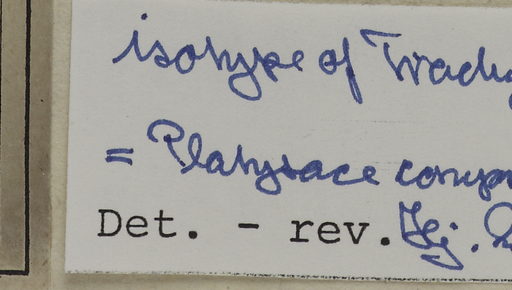 isotype of Trachy
= Platysace comp
Det. - rev. Hj.